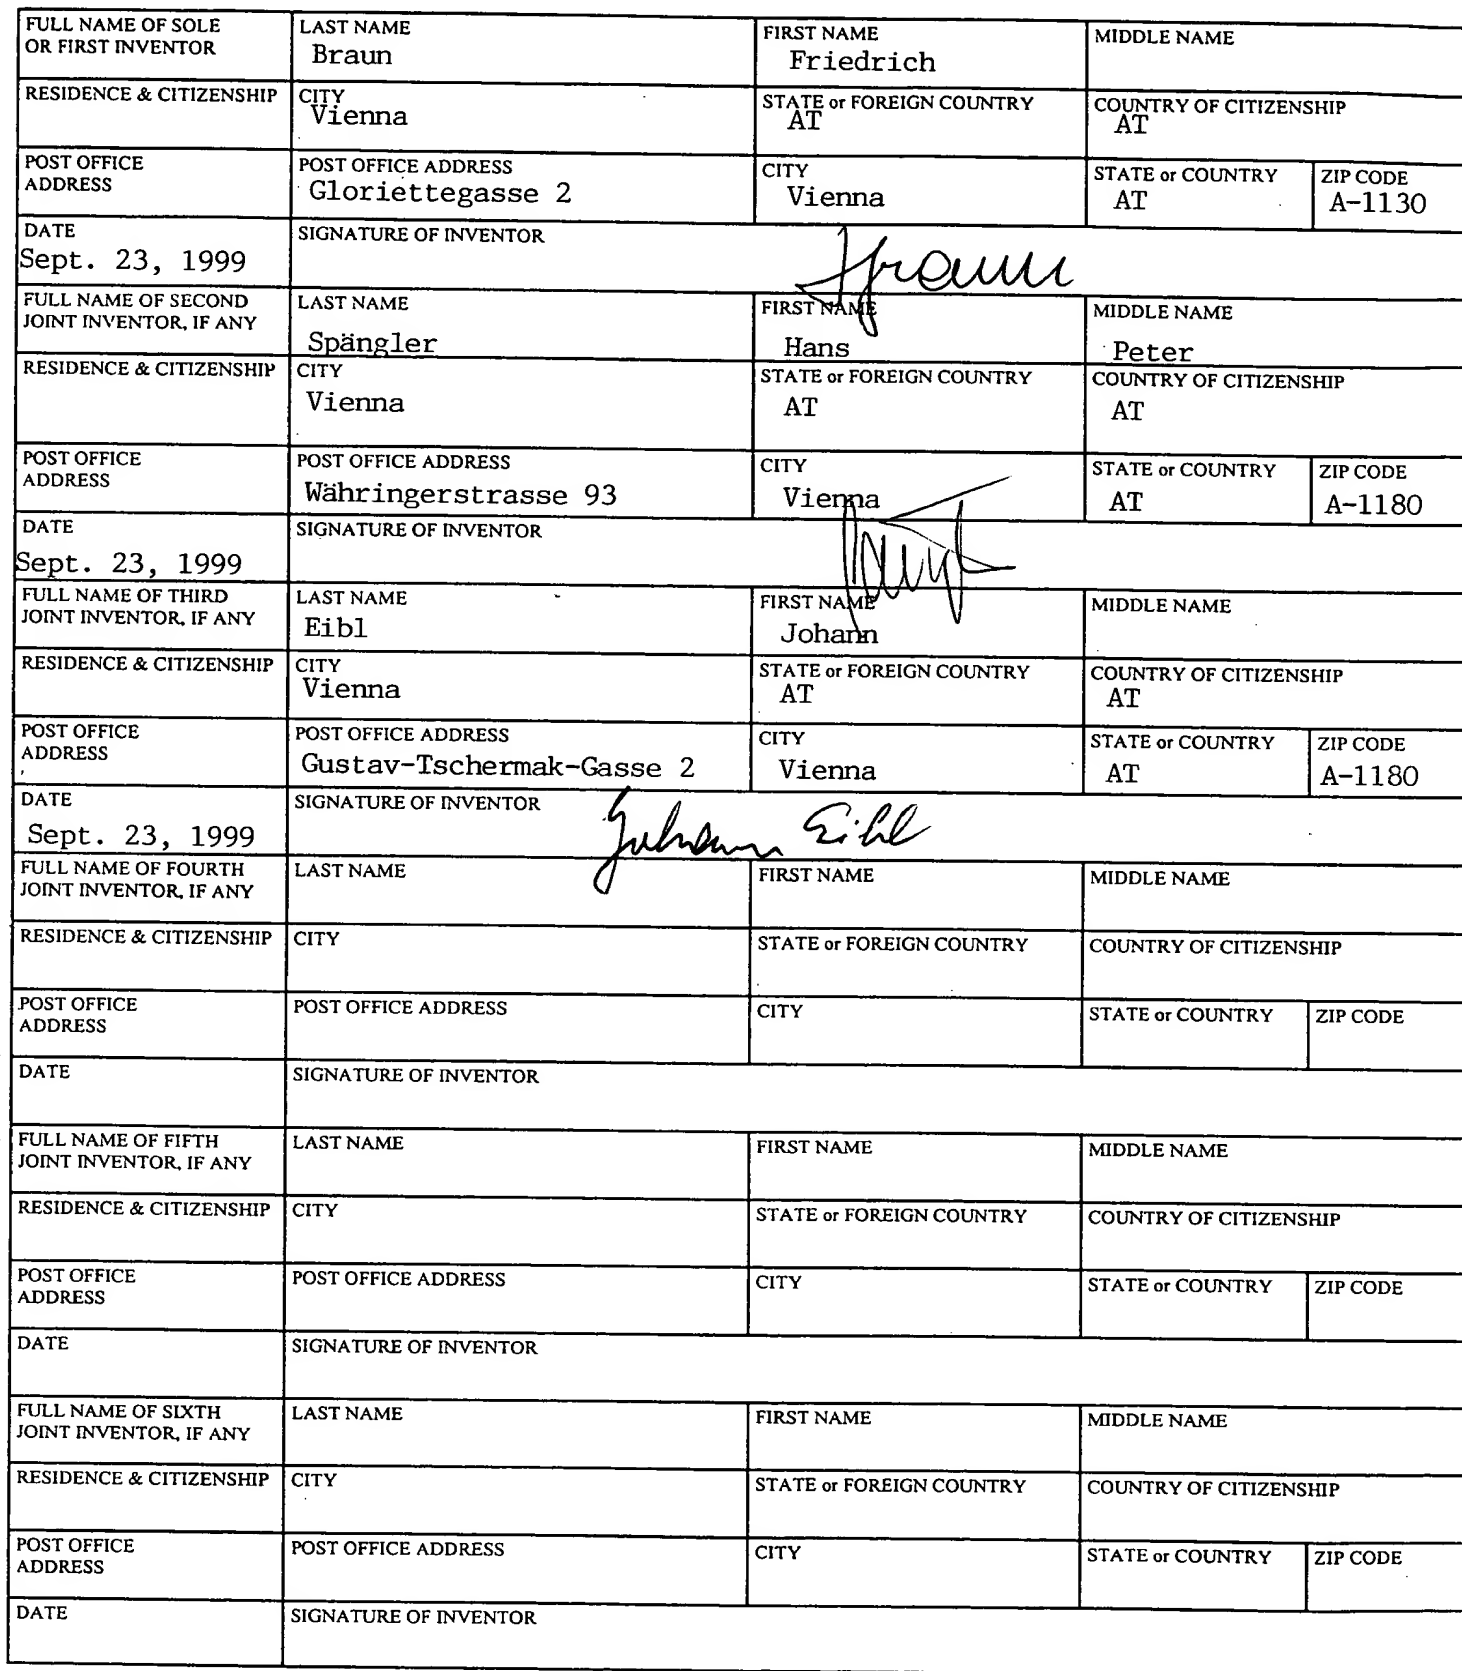 FULL NAME OF SOLE OR FIRST INVENTOR LAST NAME Braun FIRST NAME Friedrich MIDDLE NAME
RESIDENCE & CITIZENSHIP CITY Vienna STATE or FOREIGN COUNTRY AT COUNTRY OF CITIZENSHIP AT
POST OFFICE ADDRESS POST OFFICE ADDRESS Gloriettegasse 2 CITY Vienna STATE or COUNTRY AT ZIP CODE A-1130
DATE Sept. 23, 1999 SIGNATURE OF INVENTOR
FULL NAME OF SECOND JOINT INVENTOR, IF ANY LAST NAME Spängler FIRST NAME Hans MIDDLE NAME Peter
RESIDENCE & CITIZENSHIP CITY Vienna STATE or FOREIGN COUNTRY AT COUNTRY OF CITIZENSHIP AT
POST OFFICE ADDRESS POST OFFICE ADDRESS Währingerstrasse 93 CITY Vienna STATE or COUNTRY AT ZIP CODE A-1180
DATE Sept. 23, 1999 SIGNATURE OF INVENTOR
FULL NAME OF THIRD JOINT INVENTOR, IF ANY LAST NAME Eibl FIRST NAME Johann MIDDLE NAME
RESIDENCE & CITIZENSHIP CITY Vienna STATE or FOREIGN COUNTRY AT COUNTRY OF CITIZENSHIP AT
POST OFFICE ADDRESS POST OFFICE ADDRESS Gustav-Tschermak-Gasse 2 CITY Vienna STATE or COUNTRY AT ZIP CODE A-1180
DATE Sept. 23, 1999 SIGNATURE OF INVENTOR Johann Eibl
FULL NAME OF FOURTH JOINT INVENTOR, IF ANY LAST NAME FIRST NAME MIDDLE NAME
RESIDENCE & CITIZENSHIP CITY STATE or FOREIGN COUNTRY COUNTRY OF CITIZENSHIP
POST OFFICE ADDRESS POST OFFICE ADDRESS CITY STATE or COUNTRY ZIP CODE
DATE SIGNATURE OF INVENTOR
FULL NAME OF FIFTH JOINT INVENTOR, IF ANY LAST NAME FIRST NAME MIDDLE NAME
RESIDENCE & CITIZENSHIP CITY STATE or FOREIGN COUNTRY COUNTRY OF CITIZENSHIP
POST OFFICE ADDRESS POST OFFICE ADDRESS CITY STATE or COUNTRY ZIP CODE
DATE SIGNATURE OF INVENTOR
FULL NAME OF SIXTH JOINT INVENTOR, IF ANY LAST NAME FIRST NAME MIDDLE NAME
RESIDENCE & CITIZENSHIP CITY STATE or FOREIGN COUNTRY COUNTRY OF CITIZENSHIP
POST OFFICE ADDRESS POST OFFICE ADDRESS CITY STATE or COUNTRY ZIP CODE
DATE SIGNATURE OF INVENTOR